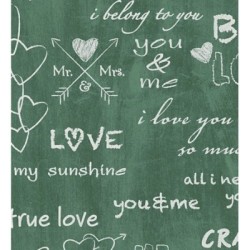 i belong to you
B
you
&
me
LO
Mr. Mrs.
&
i love you
so mu
LOVE
my sunshine
all i ne
you&me
true love
you
CRA